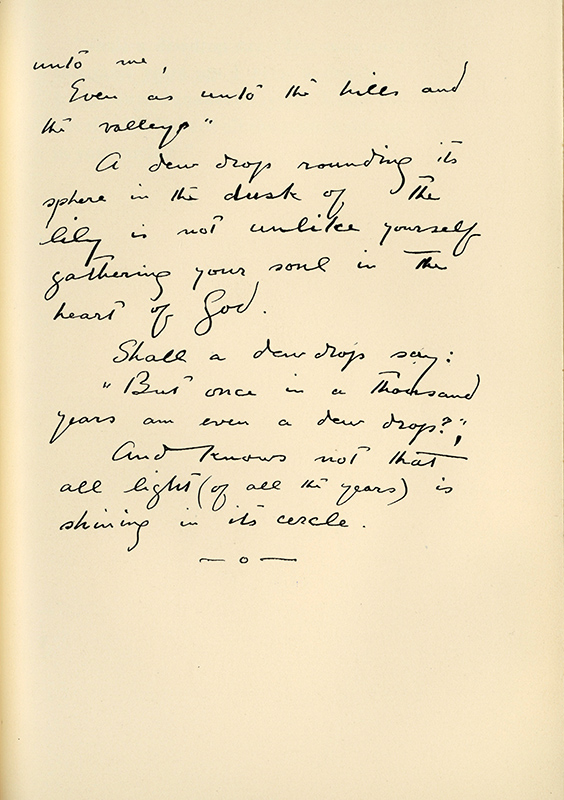 unto me,
Even as unto the hills and
the valleys"
A dew drop rounding its
sphere in the dusk of the
lily is not unlike yourself
gathering your soul in the
heart of God.
Shall a dew drop say:
"But once in a thousand
years am even a dew drop?",
And knows not that
all light (of all the years) is
shining in its cercle.
— o —